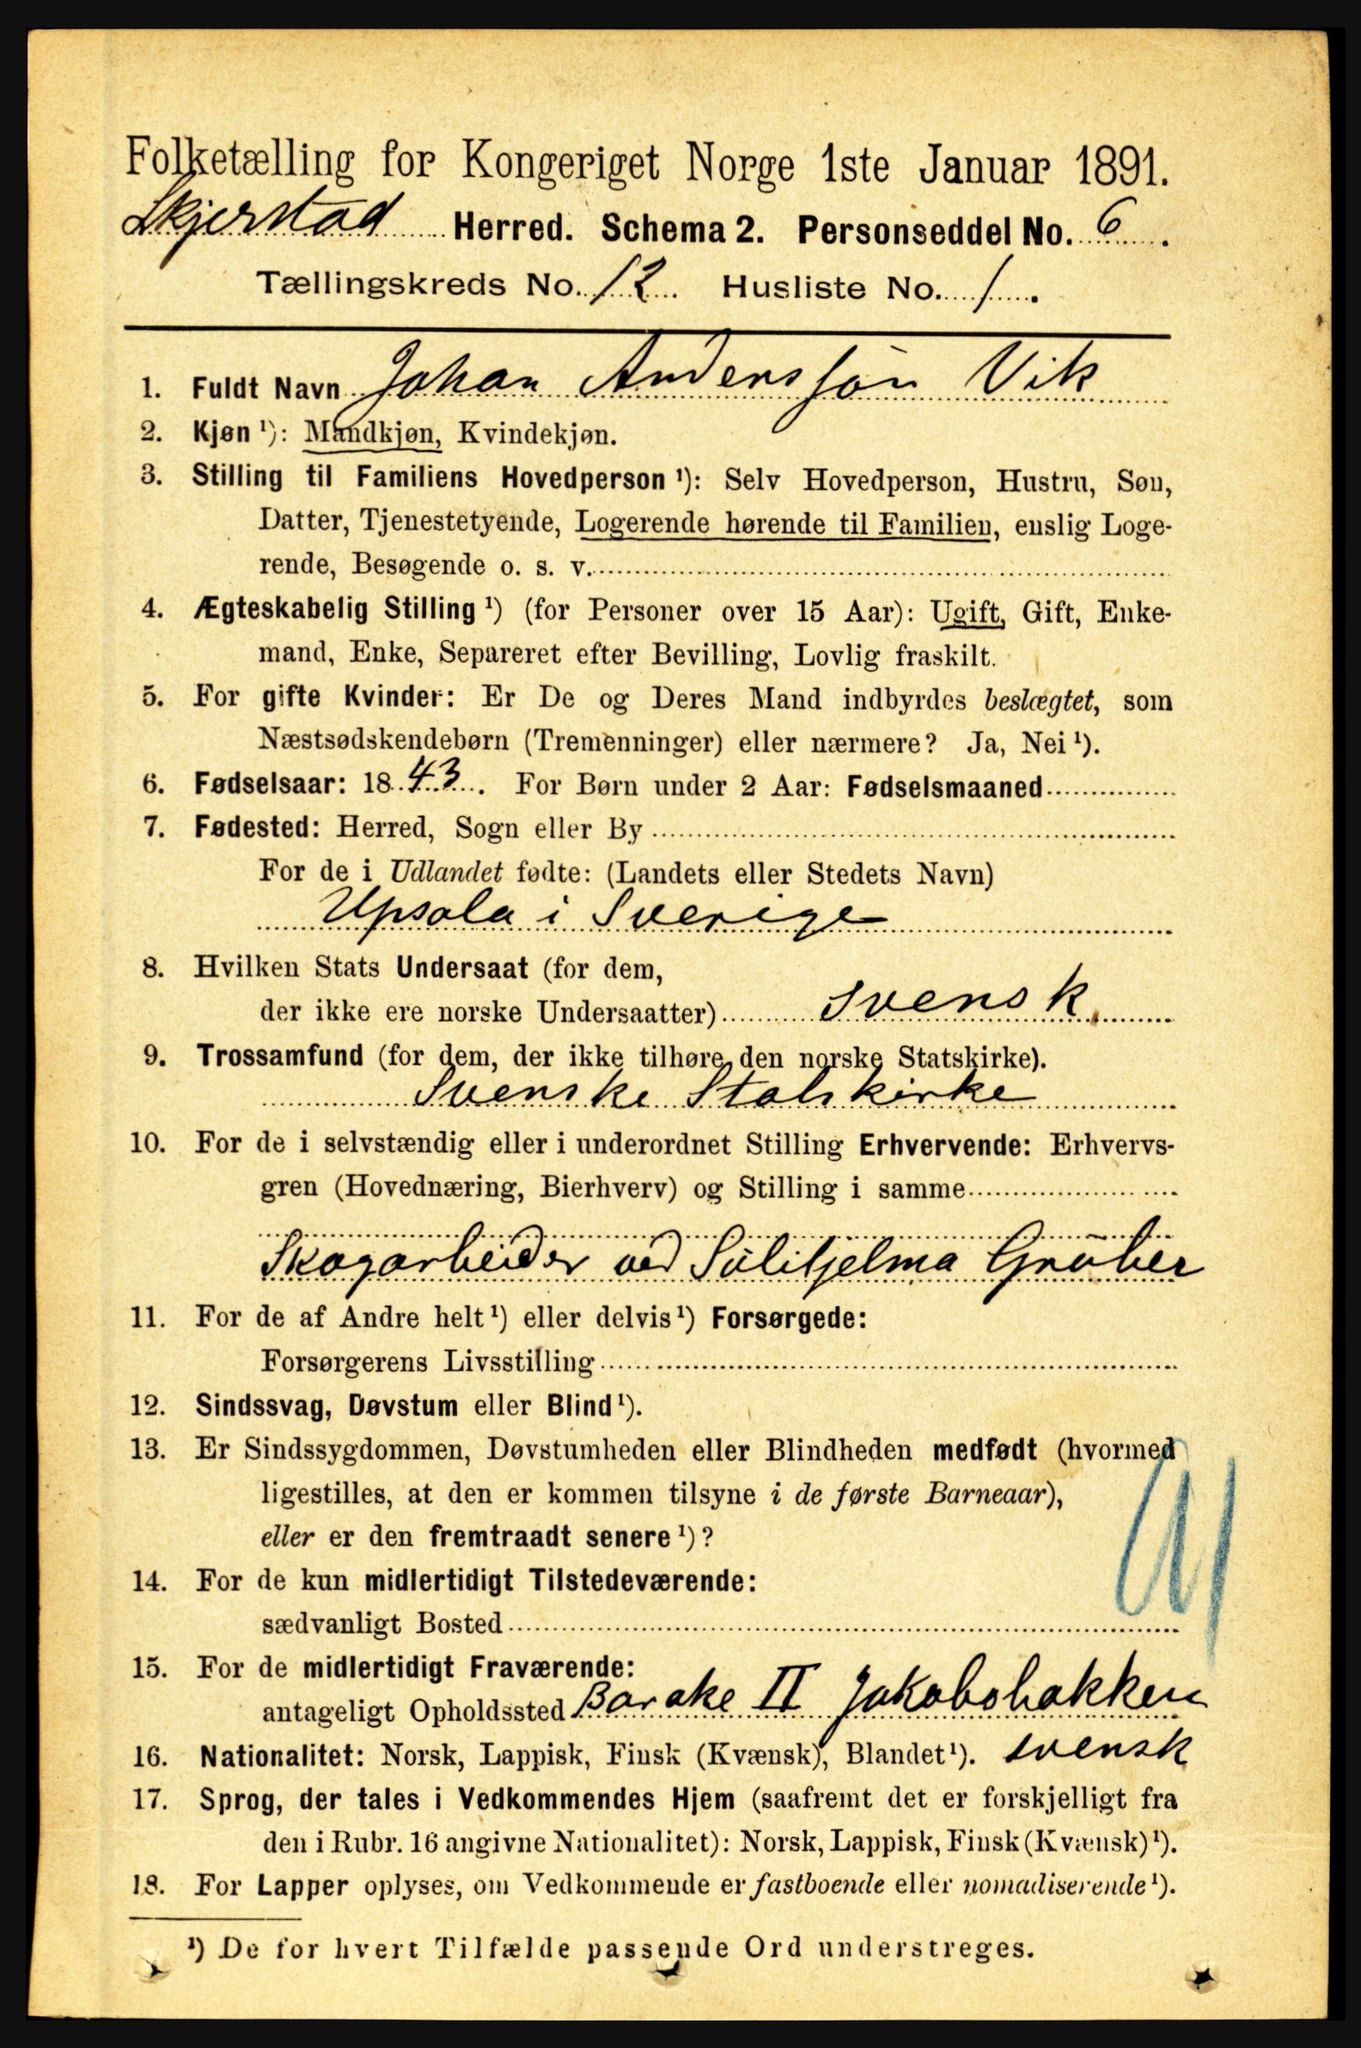 Folketælling for Kongeriget Norge 1ste Januar 1891.
Skjerstad Herred. Schema 2. Personseddel No. 6.
Tællingskreds No. 12. Husliste No. 1.
1. Fuldt Navn Johan Anderssøn Vik
2. Kjøn ¹): Mandkjøn, Kvindekjøn.
3. Stilling til Familiens Hovedperson ¹): Selv Hovedperson, Hustru, Søn,
Datter, Tjenestetyende, Logerende hørende til Familien, enslig Loge-
rende, Besøgende o. s. v.
4. Ægteskabelig Stilling ¹) (for Personer over 15 Aar): Ugift, Gift, Enke-
mand, Enke, Separeret efter Bevilling, Lovlig fraskilt.
5. For gifte Kvinder: Er De og Deres Mand indbyrdes beslægtet, som
Næstsødskendebørn (Tremenninger) eller nærmere? Ja, Nei ¹).
6. Fødselsaar: 1843. For Børn under 2 Aar: Fødselsmaaned
7. Fødested: Herred, Sogn eller By
For de i Udlandet fødte: (Landets eller Stedets Navn)
Upsala i Sverige
8. Hvilken Stats Undersaat (for dem,
der ikke ere norske Undersaatter) Svensk.
9. Trossamfund (for dem, der ikke tilhøre den norske Statskirke).
Svenske Statskirke
10. For de i selvstændig eller i underordnet Stilling Erhvervende: Erhvervs-
gren (Hovednæring, Bierhverv) og Stilling i samme
Skogarbeider ved Sulitjelma Gruber
11. For de af Andre helt ¹) eller delvis ¹) Forsørgede:
Forsørgerens Livsstilling
12. Sindssvag, Døvstum eller Blind ¹).
13. Er Sindssygdommen, Døvstumheden eller Blindheden medfødt (hvormed
ligestilles, at den er kommen tilsyne i de første Barneaar),
eller er den fremtraadt senere ¹)?
14. For de kun midlertidigt Tilstedeværende:
sædvanligt Bosted
15. For de midlertidigt Fraværende:
antageligt Opholdssted Barake II Jakobsbakken
16. Nationalitet: Norsk, Lappisk, Finsk (Kvænsk), Blandet ¹). svensk
17. Sprog, der tales i Vedkommendes Hjem (saafremt det er forskjelligt fra
den i Rubr. 16 angivne Nationalitet): Norsk, Lappisk, Finsk (Kvænsk) ¹).
18. For Lapper oplyses, om Vedkommende er fastboende eller nomadiserende ¹).
¹) De for hvert Tilfælde passende Ord understreges.